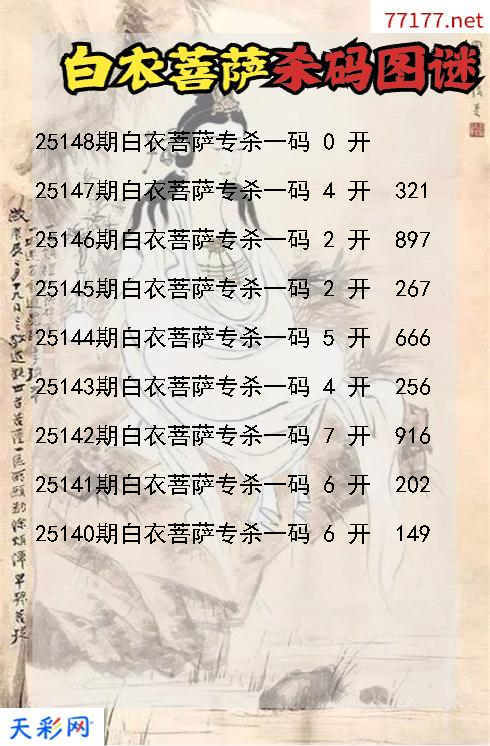 77177.net
白衣菩萨杀码图谜
25148期白衣菩萨专杀一码 0 开
25147期白衣菩萨专杀一码 4 开 321
25146期白衣菩萨专杀一码 2 开 897
25145期白衣菩萨专杀一码 2 开 267
25144期白衣菩萨专杀一码 5 开 666
25143期白衣菩萨专杀一码 4 开 256
25142期白衣菩萨专杀一码 7 开 916
25141期白衣菩萨专杀一码 6 开 202
25140期白衣菩萨专杀一码 6 开 149
天彩网